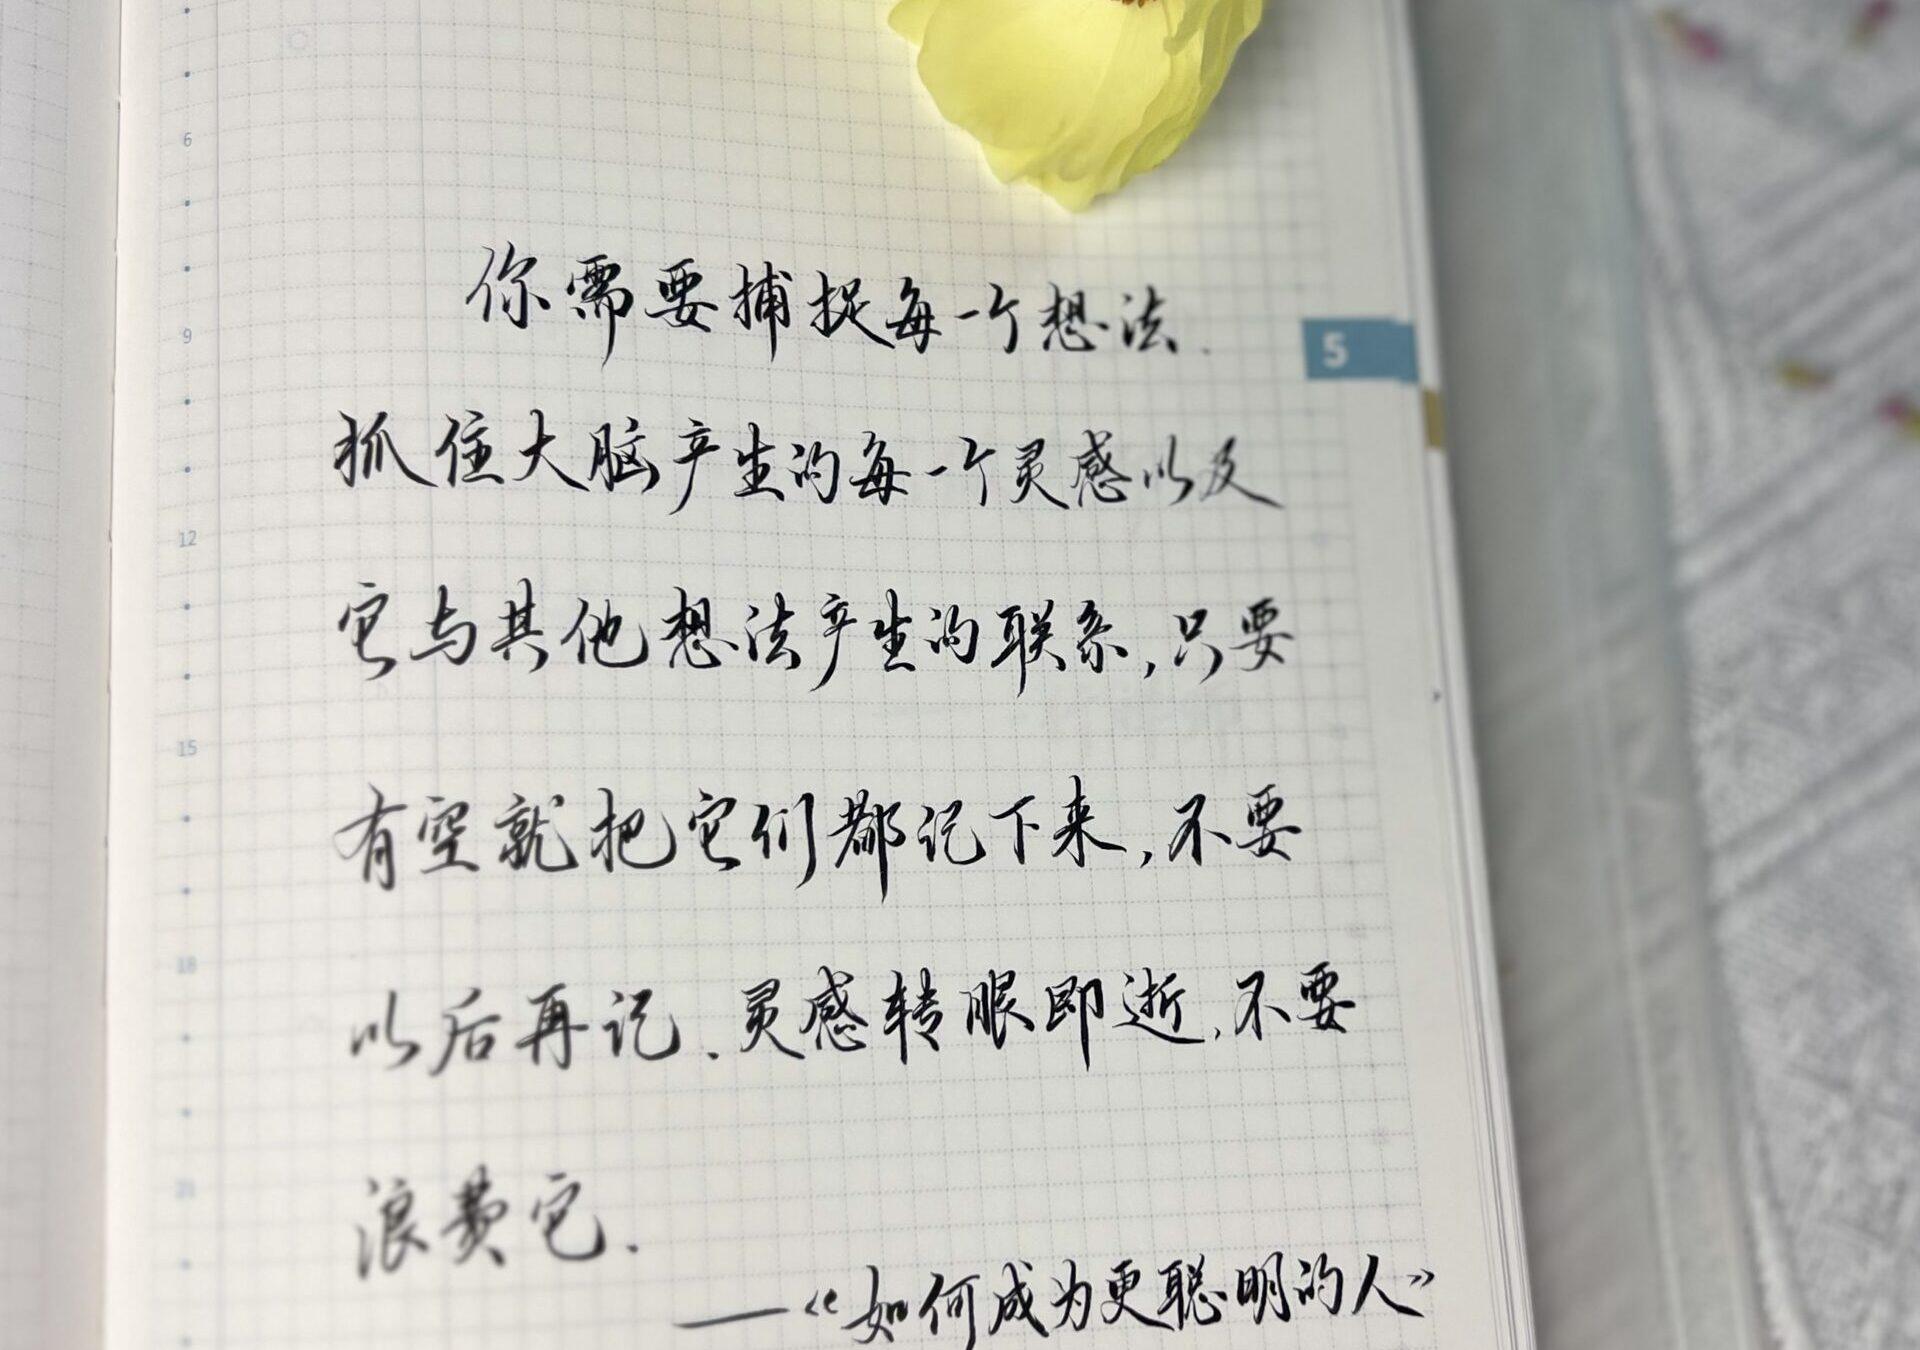 你需要捕捉每一个想法.
抓住大脑产生的每一个灵感以及
它与其他想法产生的联系,只要
有空就把它们都记下来,不要
以后再记.灵感转眼即逝,不要
浪费它.
——《如何成为更聪明的人》
6
9
12
15
18
21
5